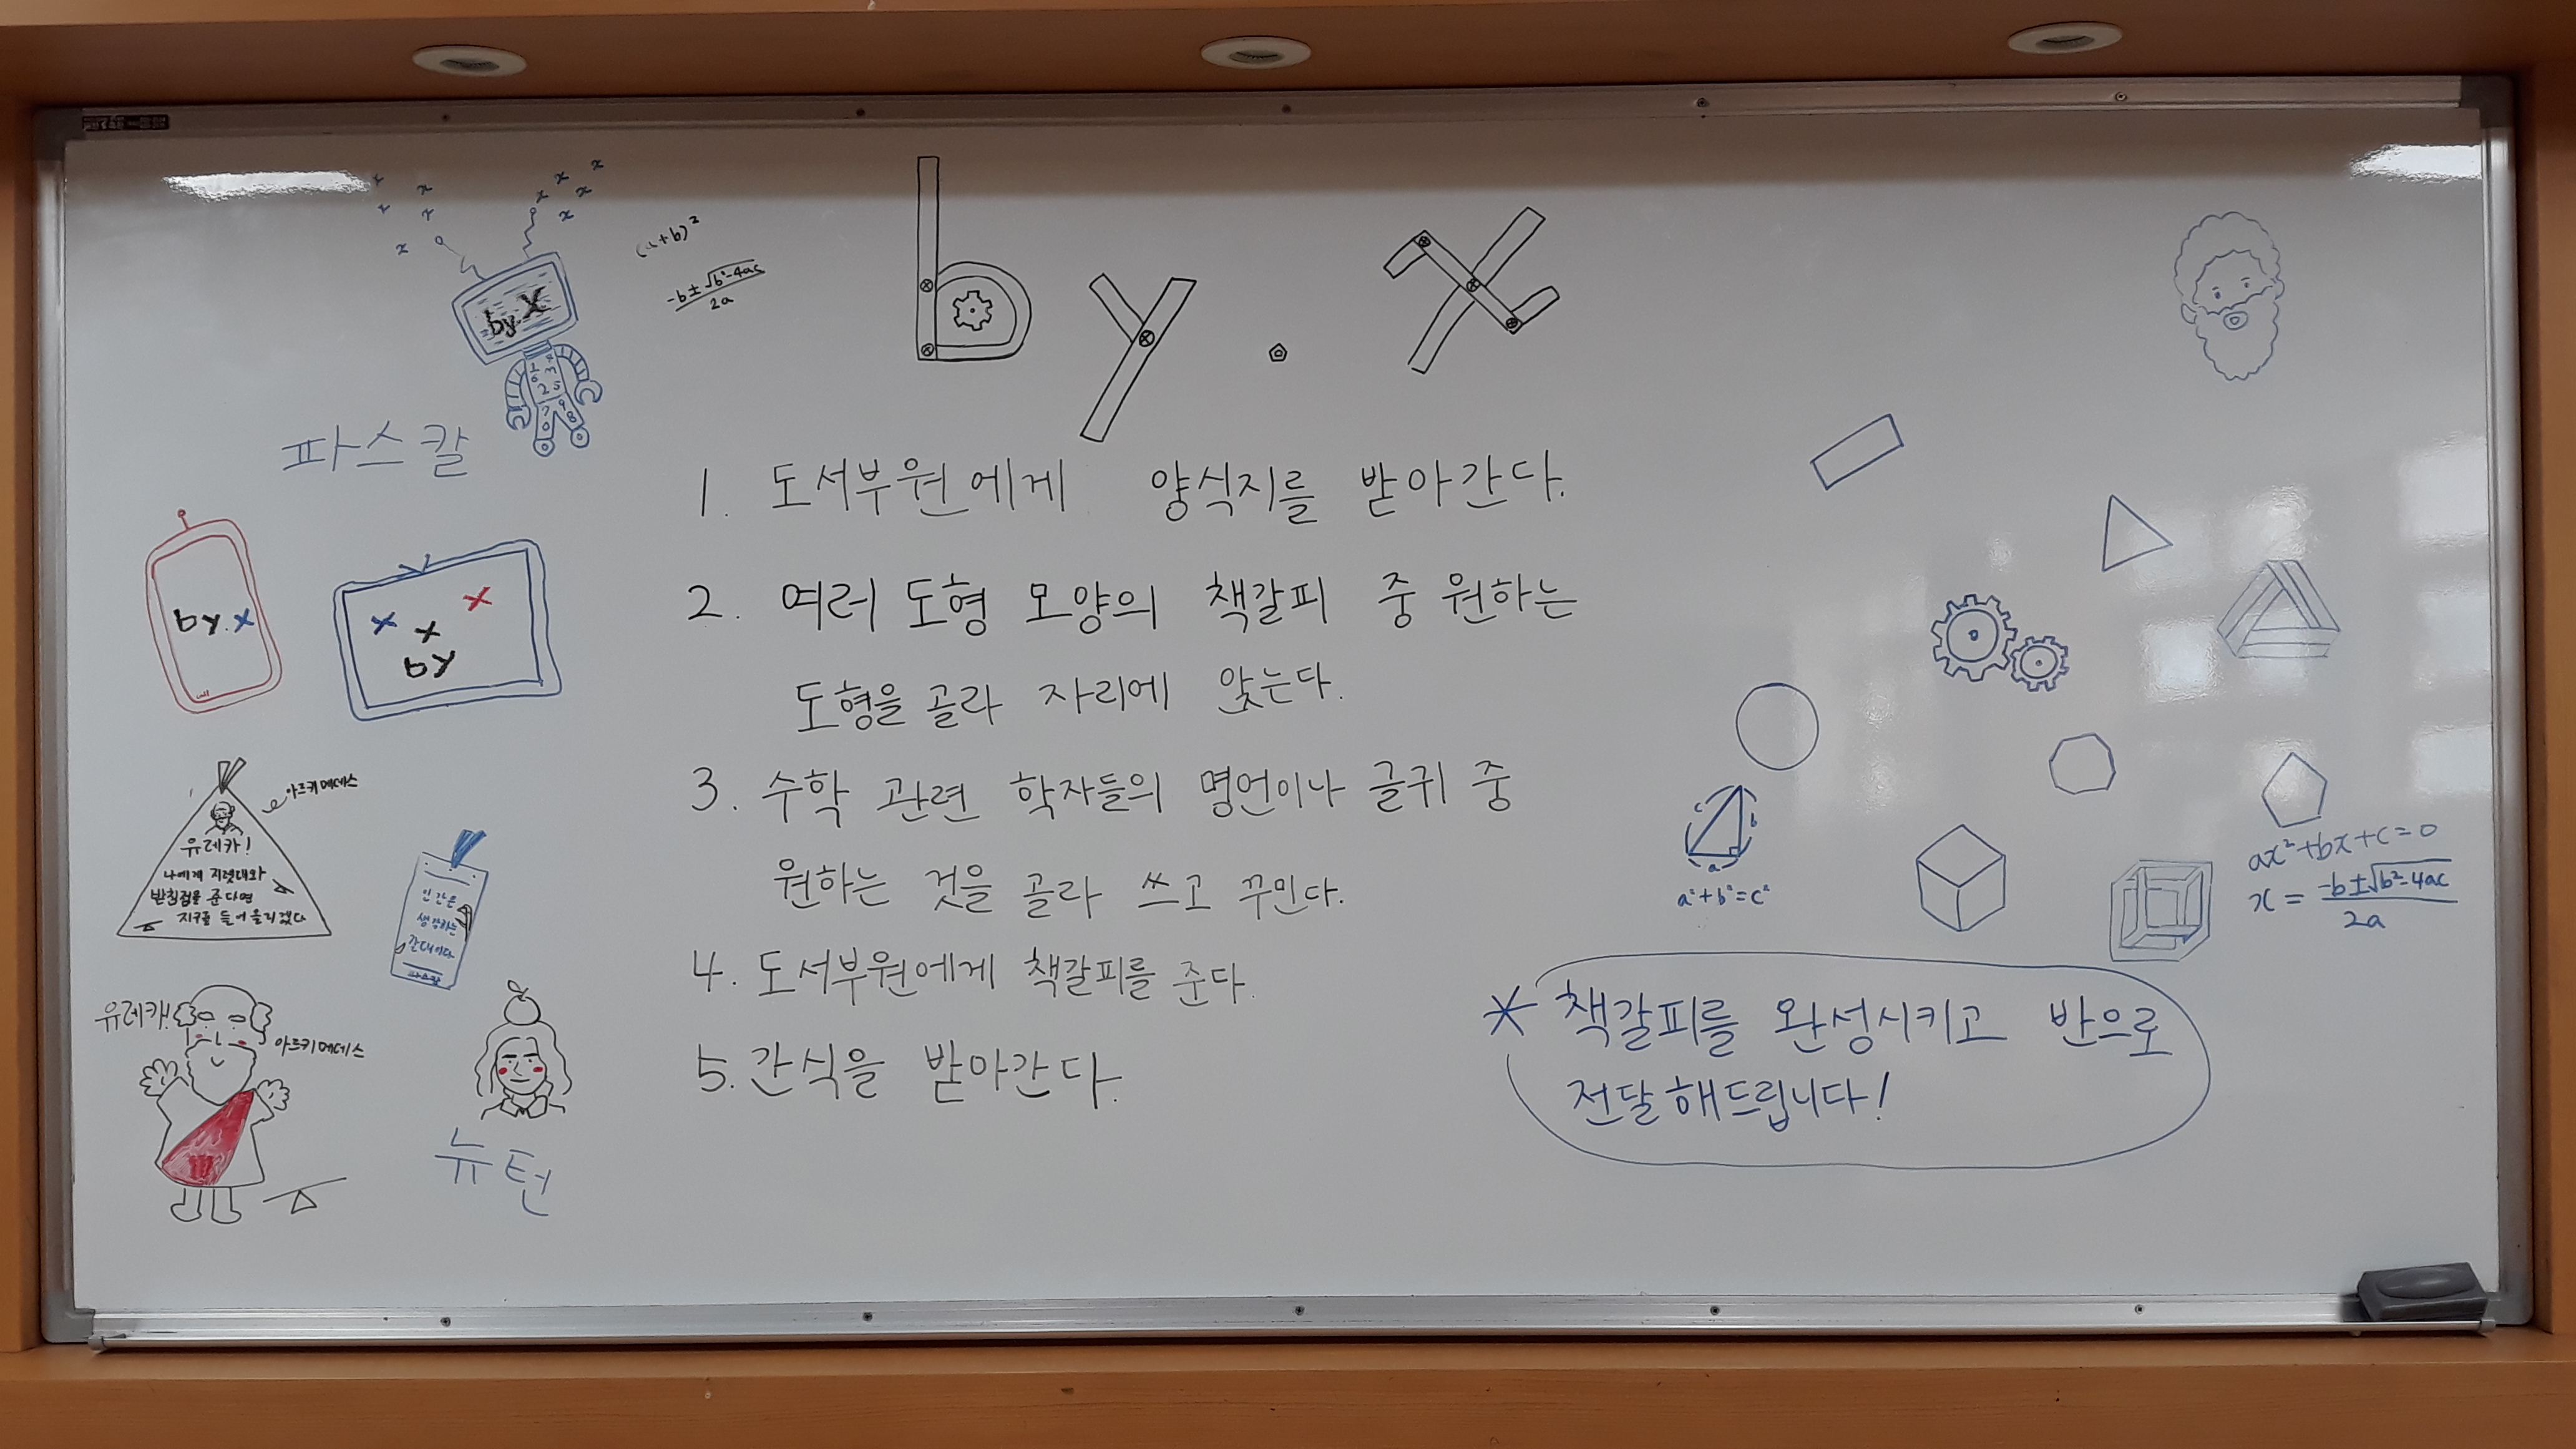 by.x
(a+b)²
-b±√b²-4ac
2a
by.X
파스칼
1. 도서부원에게 양식지를 받아간다.
2. 여러 도형 모양의 책갈피 중 원하는
도형을 골라 자리에 앉는다.
3. 수학 관련 학자들의 명언이나 글귀 중
원하는 것을 골라 쓰고 꾸민다.
4. 도서부원에게 책갈피를 준다.
5. 간식을 받아간다.
by.x
x x x
by
아르키메데스
유레카!
나에게 지렛대와
받침점을 준다면
지구를 들어올리겠다
인간은
생각하는
갈대이다.
파스칼
유레카!
아르키메데스
뉴턴
c b
a
a²+b²=c²
ax²+bx+c=0
x = -b±√b²-4ac
2a
* 책갈피를 완성시키고 반으로
전달해드립니다!